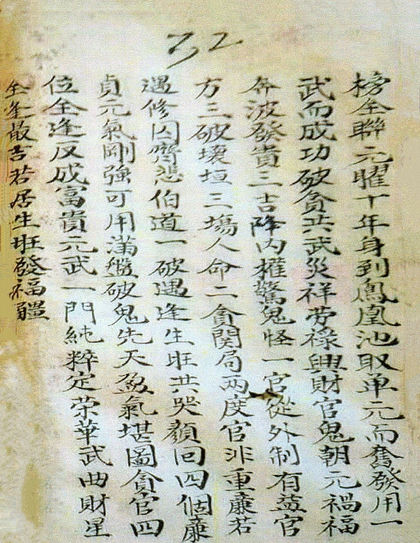 32
榜全聯元曜十年身到鳳凰池取单元而奮發用一
武而成功破貪共武災祥劳祿興財官鬼朝元禍福
奔波發貴三吉降内權驚鬼怪一官從外制有益官
方三破壞垣三塲人命二貪関局两度官非重廉若
遇修囚齊悲伯道一破遇逢生旺共哭顏回四個廉
貞元氣剛強可用滿盤破鬼先天盈氣堪圖貪官四
位全逢反成富貴元武一門純粹定荣華武曲財星
全逢最吉若居生旺發福